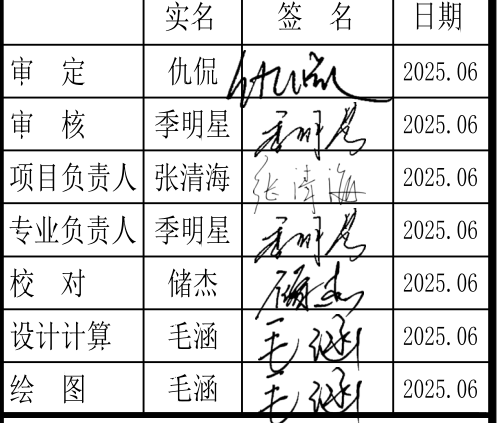 实名 签 名 日期
审 定 仇侃 仇侃 2025.06
审 核 季明星 季明星 2025.06
项目负责人 张清海 张清海 2025.06
专业负责人 季明星 季明星 2025.06
校 对 储杰 2025.06
设计计算 毛涵 毛涵 2025.06
绘 图 毛涵 毛涵 2025.06